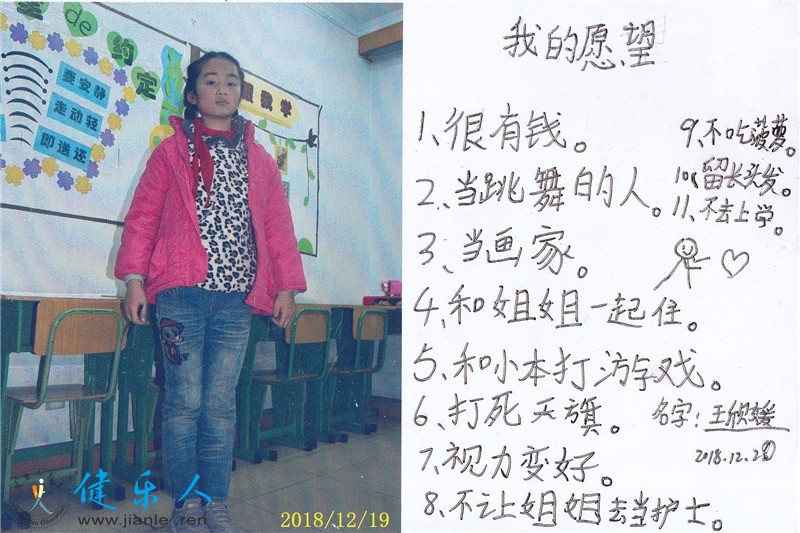 de
约定
要安静
走动轻
即送还
教学
健乐人
www.jianle .ren
2018/12/19
我的愿望
1、很有钱。
2、当跳舞的人。
3、当画家。
4、和姐姐一起住。
5、和小本打游戏。
6、打死天旗。
7、视力变好。
8、不让姐姐去当护士。
9、不吃菠萝。
10、留长头发。
11、不去上学。
名字：王欣媛
2018.12.2